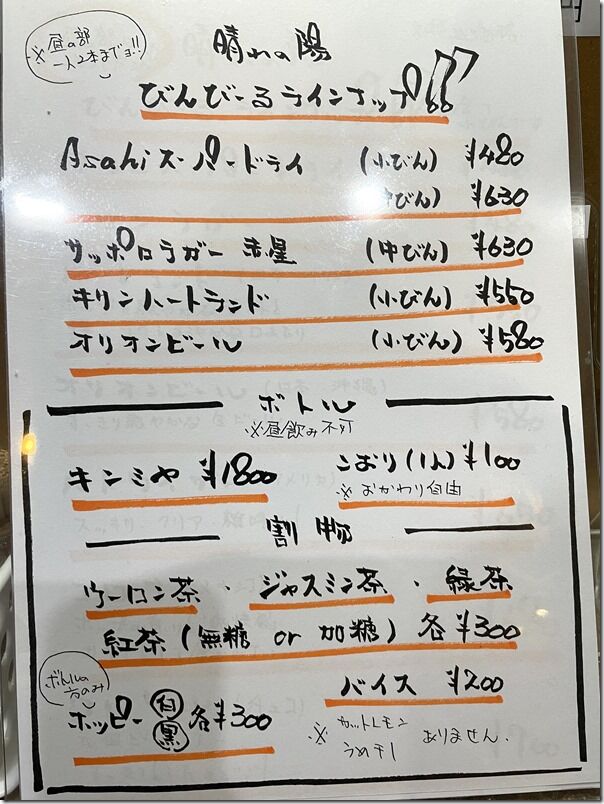 ※昼の部
一人2本までヨ!!
晴れの陽
びんびーるラインナップ!!
Asahiスーパードライ (小びん) ¥480
(中びん) ¥630
サッポロラガー 赤星 (中びん) ¥630
キリンハートランド (小びん) ¥550
オリオンビール (小びん) ¥580
ボトル
※昼飲み不可
キンミヤ ¥1800 こおり(1人) ¥100
※おかわり自由
割物
ウーロン茶・ジャスミン茶・緑茶
紅茶(無糖 or 加糖) 各¥300
ボトルの
方のみ
ホッピー 白 黒 各¥300
バイス ¥200
※カットレモン
うめチュ ありません.